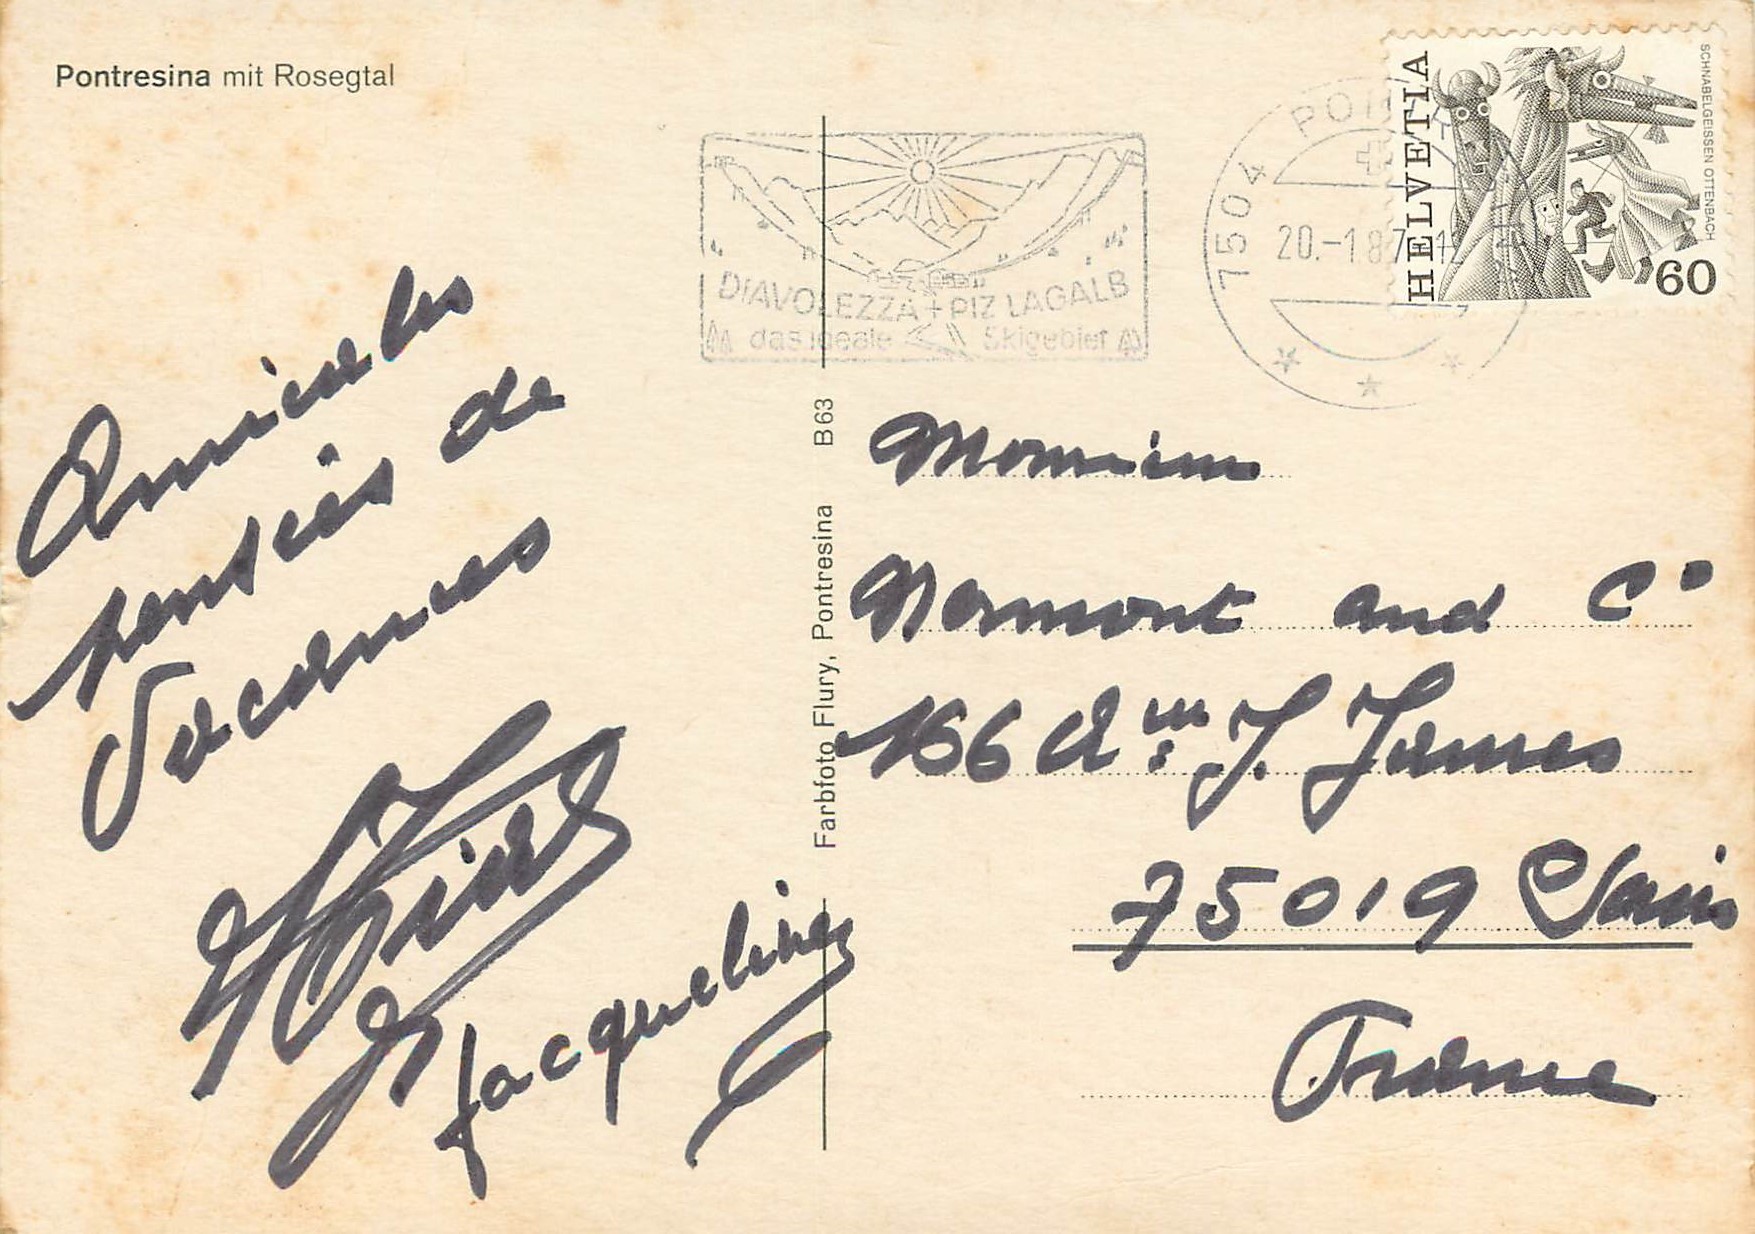 Pontresina mit Rosegtal
HELVETIA
SCHNABELGEISSEN OTTENBACH
60
7504
20.-1.87
DIAVOLEZZA + PIZ LAGALB
das ideale Skigebiet
Amicales
pensées de
Vacances
Jacqueline
Farbfoto Flury, Pontresina B63
Monsieur
Normont and C°
166 J. Jaures
75019 Paris
France